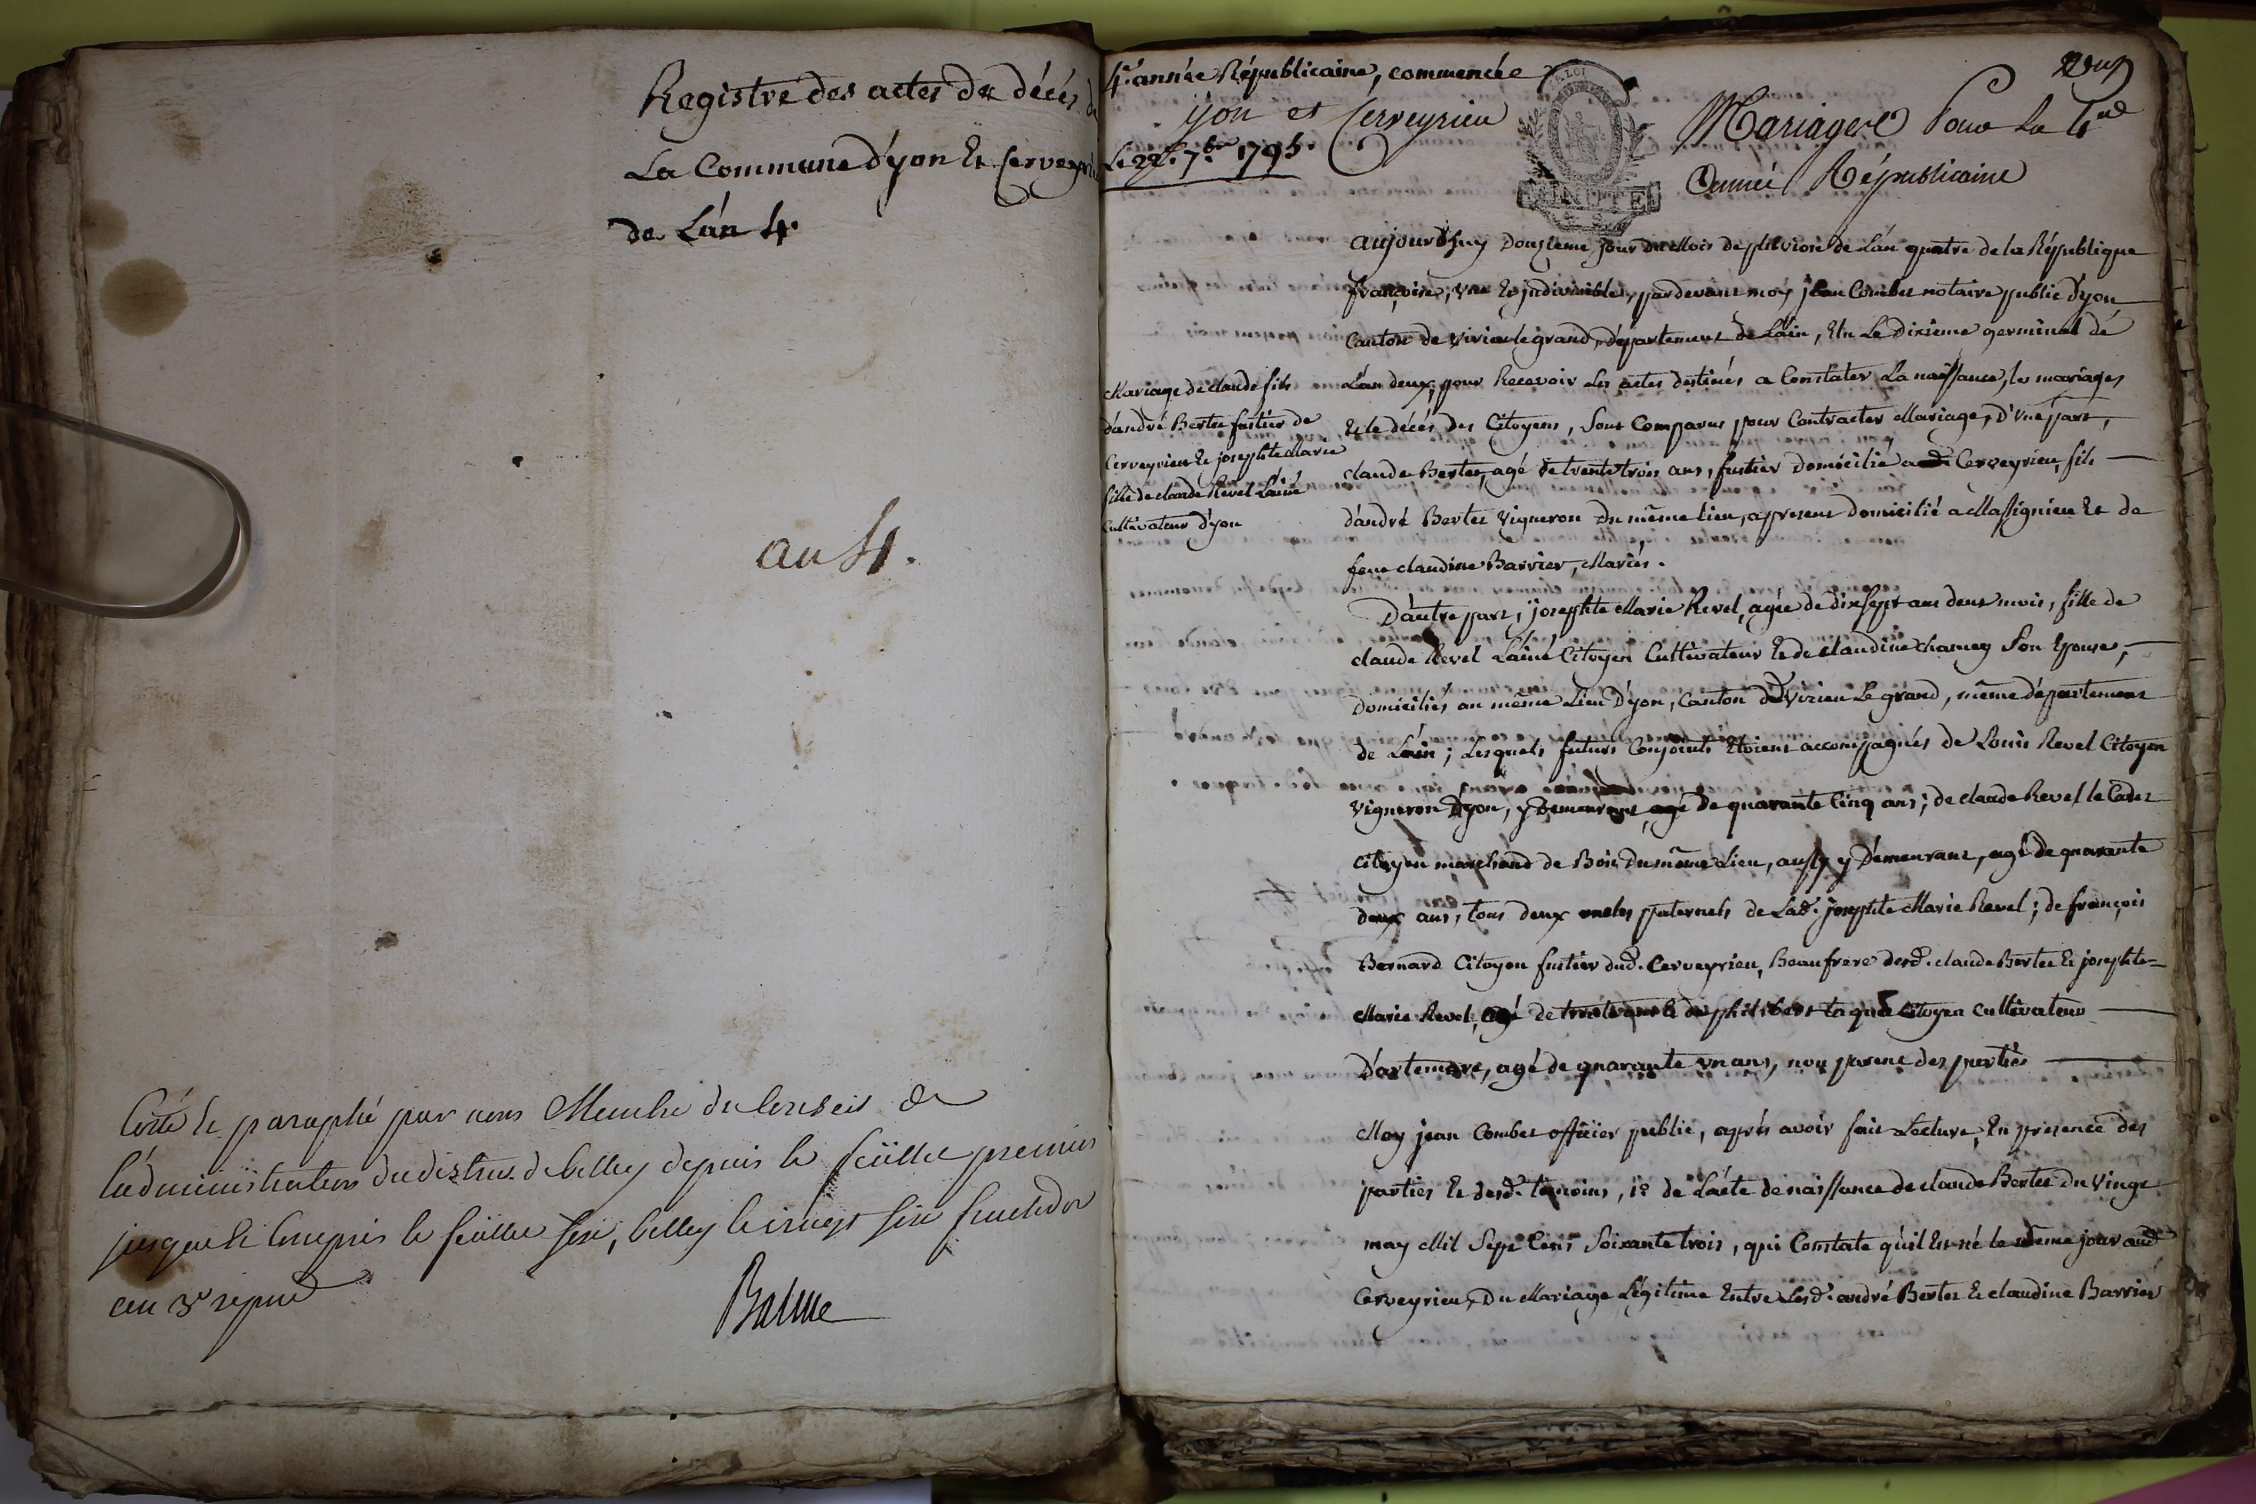 Registre des actes de décés de
La Commune d'yon Et Cerveyrieu
de L'an 4.
an 4.
Cotté Et paraphé par nous Membre du Conseil de
L'administration du district de belley depuis le feüillet premier
jusques Et Compris le feüillet six, belley le vingt six fructidor
an 3e repue
Balme
4e année Républicaine, commencée
yon et Cerveyrieu
Le 22e 7bre 1795.
MINUTE
Mariages Pour la 4me
année Républicaine
Mariage de claude fils
d'andré Bertet fustier de
Cerveyrieu Et josephte Marie
fille de claude Revel L'ainé
Cultivateur d'yon
aujourd'huy Douzieme jour du Mois de pluviose de L'an quatre de la République
françoise, une Et jndivisible, pardevant moy jean Combet notaire public d'yon
Canton de virieu le grand, département de L'ain, Elu Le Dixieme germinal de
L'an deux, pour Recevoir Les actes destinés a Constater La naissance, les mariages
Et le décés des Citoyens, Sont Comparus pour Contracter Mariage, D'une part,
claude Bertet, agé de trente trois ans, fustier Domicilié aud. Cerveyrieu, fils
d'andré Bertet Vigneron Du même lieu, appresent Domicilié a Massignieu Et de
feue claudine Barrier, Mariés.
D'autre part, josephte Marie Revel, agée de dix sept ans deux mois, fille de
claude Revel L'ainé Citoyen Cultivateur Et de claudine charvey Son Epouse,
Domiciliés au même Lieu D'yon, Canton de Virieu Le grand, même département
de L'ain; Lesquels futurs Conjoints Etoient accompagnés de Louis Revel Citoyen
Vigneron D'yon, y Demeurant, agé de quarante Cinq ans; de claude Revel le Cadet
Citoyen marchand de Bois Du même Lieu, aussy y Demeurant, agé de quarante
deux ans, tous deux oncles paternels de Lad. josephte Marie Revel; de françois
Bernard Citoyen fustier dud. Cerveyrieu, Beaufrere desd. claude Bertet Et josephte
Marie Revel, agé de Et de philibert Citoyen Cultivateur
D'artemare, agé de quarante un ans, non parent des parties
Moy jean Combet officier public, aprés avoir fait Lecture, En presence des
parties Et desd. témoins, 1° de L'acte de naissance de claude Bertet Du Vingt
may Mil Sept Cent Soixante trois, qui Constate qu'il Est né le même jour aud.
Cerveyrieu, Du Mariage Légitime Entre Lesd. andré Bertet Et claudine Barrier